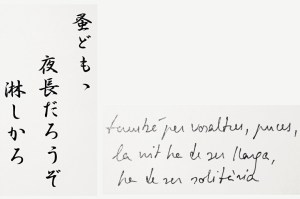 蚤ども、
夜長だろうぞ
淋しかろ
també per vosaltres, puces,
la nit ha de ser llarga,
ha de ser solitària